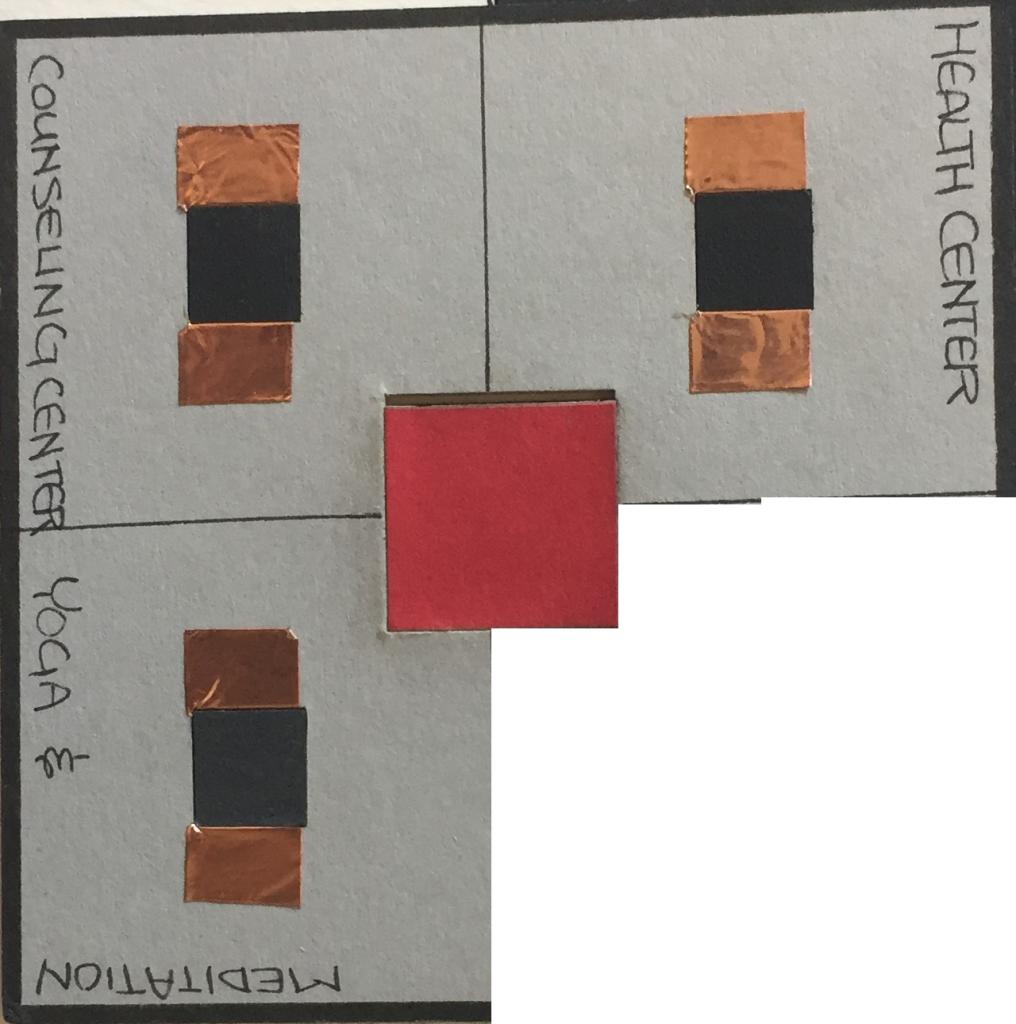 COUNSELING CENTER
HEALTH CENTER
YOGA &
MEDITATION